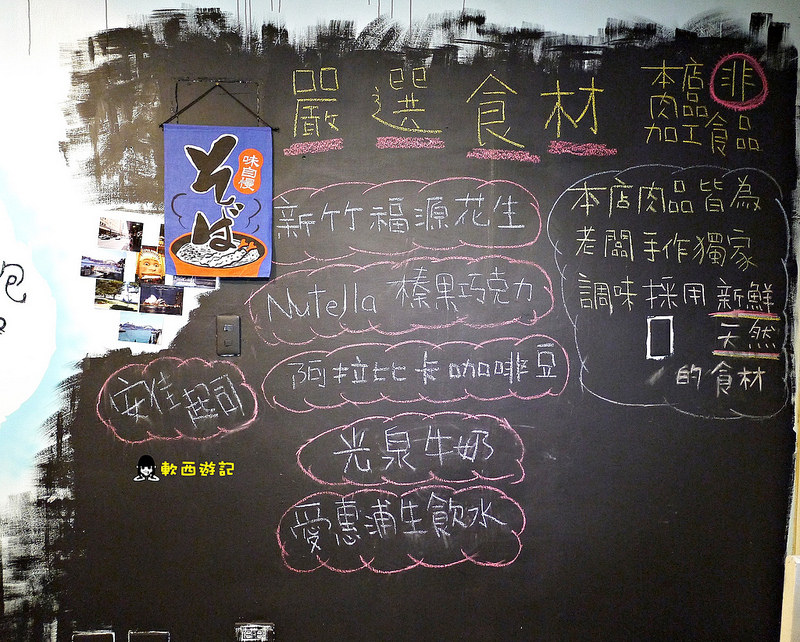 嚴選食材
本店非
肉品
加工食品
味自慢
そば
新竹福源花生
Nutella 榛果巧克力
阿拉比卡咖啡豆
安佳起司
光泉牛奶
愛惠浦生飲水
本店肉品皆為
老闆手作獨家
調味採用新鮮
天然
的食材
軟西遊記